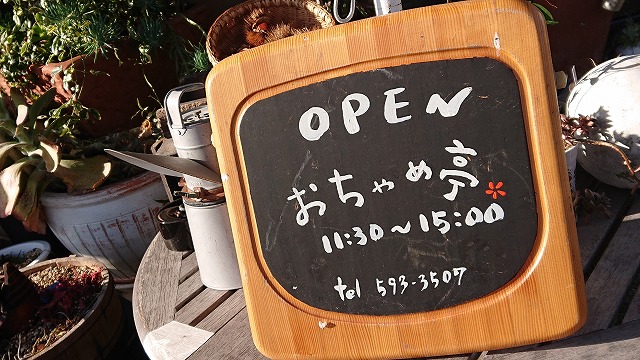 OPEN
おちゃめ亭
11:30〜15:00
tel 593-3507